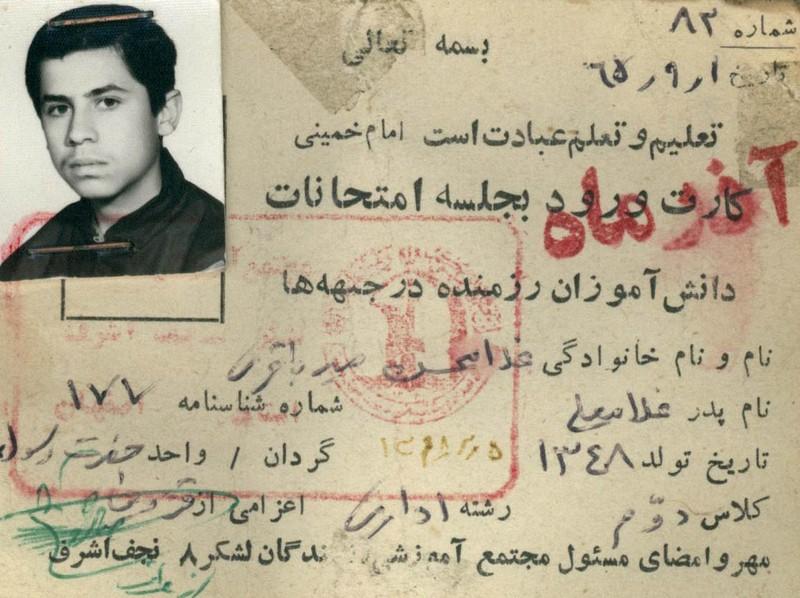 شماره ۸۲
بسمه تعالی
تاریخ ۶۵/۹/۱
تعلیم و تعلم عبادت است امام خمینی
کارت ورود بجلسه امتحانات
آذر ماه
دانش آموزان رزمنده در جبهه‌ها
نام و نام خانوادگی غلامحسن
نام پدر غلامعلی شماره شناسنامه ۱۷۷
تاریخ تولد ۱۳۴۸ گردان / واحد حضرت رسول
کلاس دوّم رشته اداری اعزامی از
مهر و امضای مسئول مجتمع آموزشی رزمندگان لشکر ۸ نجف اشرف